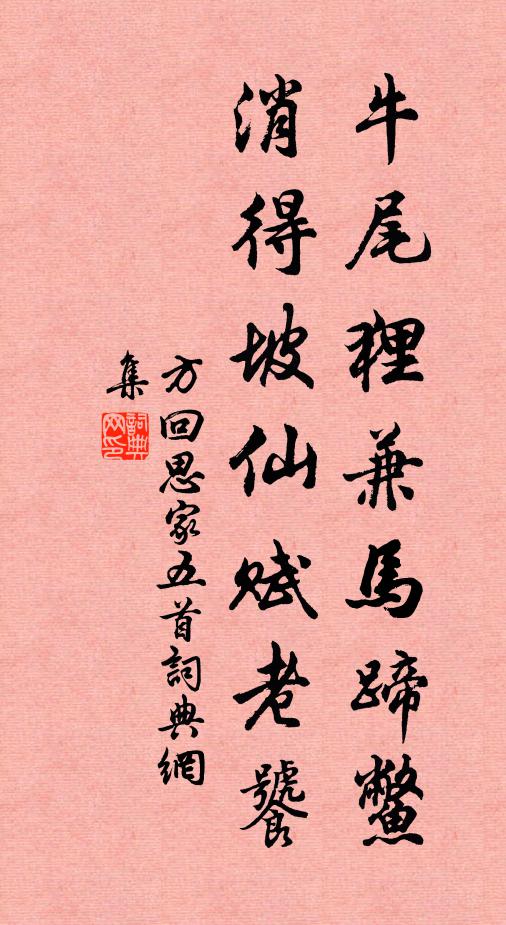 牛尾狸兼馬蹄鱉
消得坡仙賦老饕
方回思家五首詞典網
集
詞典
网印